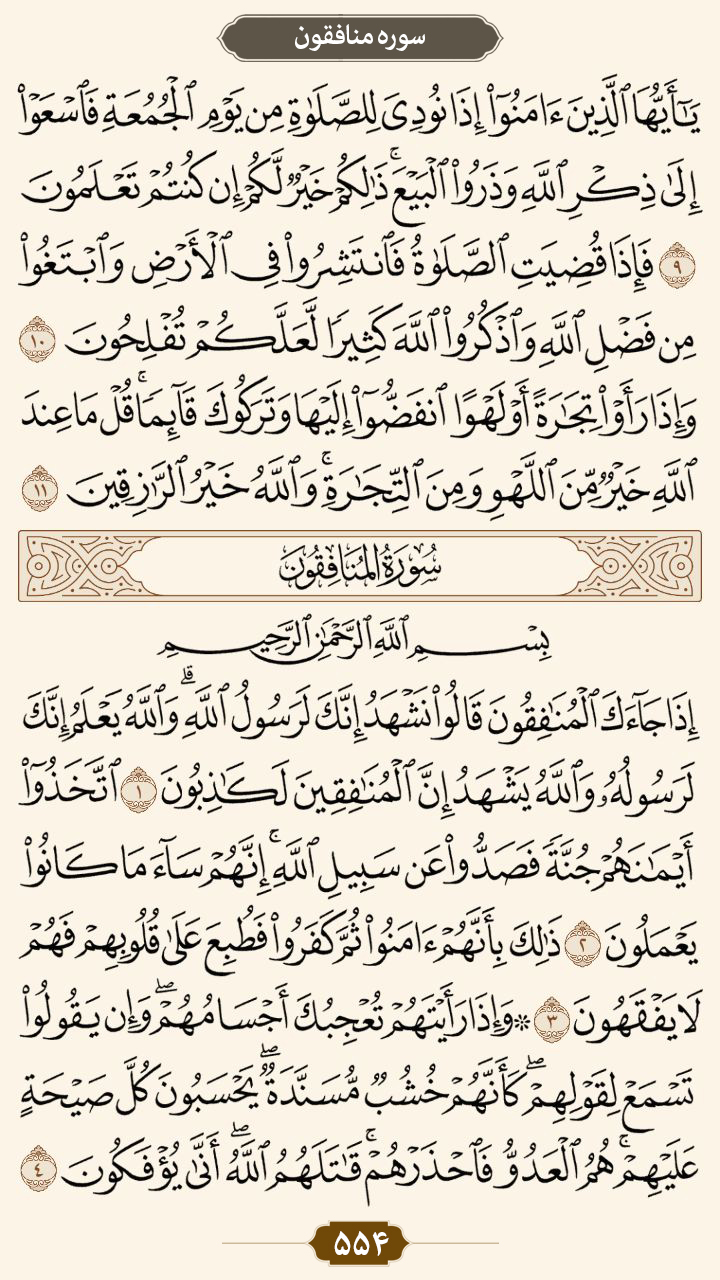 سوره منافقون
يَٰٓأَيُّهَا ٱلَّذِينَ ءَامَنُوٓا۟ إِذَا نُودِىَ لِلصَّلَوٰةِ مِن يَوْمِ ٱلْجُمُعَةِ فَٱسْعَوْا۟
إِلَىٰ ذِكْرِ ٱللَّهِ وَذَرُوا۟ ٱلْبَيْعَ ۚ ذَٰلِكُمْ خَيْرٌ لَّكُمْ إِن كُنتُمْ تَعْلَمُونَ
٩ فَإِذَا قُضِيَتِ ٱلصَّلَوٰةُ فَٱنتَشِرُوا۟ فِى ٱلْأَرْضِ وَٱبْتَغُوا۟
مِن فَضْلِ ٱللَّهِ وَٱذْكُرُوا۟ ٱللَّهَ كَثِيرًا لَّعَلَّكُمْ تُفْلِحُونَ ١٠
وَإِذَا رَأَوْا۟ تِجَٰرَةً أَوْ لَهْوًا ٱنفَضُّوٓا۟ إِلَيْهَا وَتَرَكُوكَ قَآئِمًا ۚ قُلْ مَا عِندَ
ٱللَّهِ خَيْرٌ مِّنَ ٱللَّهْوِ وَمِنَ ٱلتِّجَٰرَةِ ۚ وَٱللَّهُ خَيْرُ ٱلرَّٰزِقِينَ ١١
سُورَةُ المُنَافِقُونَ
بِسْمِ ٱللَّهِ ٱلرَّحْمَٰنِ ٱلرَّحِيمِ
إِذَا جَآءَكَ ٱلْمُنَٰفِقُونَ قَالُوا۟ نَشْهَدُ إِنَّكَ لَرَسُولُ ٱللَّهِ ۗ وَٱللَّهُ يَعْلَمُ إِنَّكَ
لَرَسُولُهُۥ وَٱللَّهُ يَشْهَدُ إِنَّ ٱلْمُنَٰفِقِينَ لَكَٰذِبُونَ ١ ٱتَّخَذُوٓا۟
أَيْمَٰنَهُمْ جُنَّةً فَصَدُّوا۟ عَن سَبِيلِ ٱللَّهِ ۚ إِنَّهُمْ سَآءَ مَا كَانُوا۟
يَعْمَلُونَ ٢ ذَٰلِكَ بِأَنَّهُمْ ءَامَنُوا۟ ثُمَّ كَفَرُوا۟ فَطُبِعَ عَلَىٰ قُلُوبِهِمْ فَهُمْ
لَا يَفْقَهُونَ ٣ ۞ وَإِذَا رَأَيْتَهُمْ تُعْجِبُكَ أَجْسَامُهُمْ ۖ وَإِن يَقُولُوا۟
تَسْمَعْ لِقَوْلِهِمْ ۖ كَأَنَّهُمْ خُشُبٌ مُّسَنَّدَةٌ ۖ يَحْسَبُونَ كُلَّ صَيْحَةٍ
عَلَيْهِمْ ۚ هُمُ ٱلْعَدُوُّ فَٱحْذَرْهُمْ ۚ قَٰتَلَهُمُ ٱللَّهُ ۖ أَنَّىٰ يُؤْفَكُونَ ٤
۵۵۴